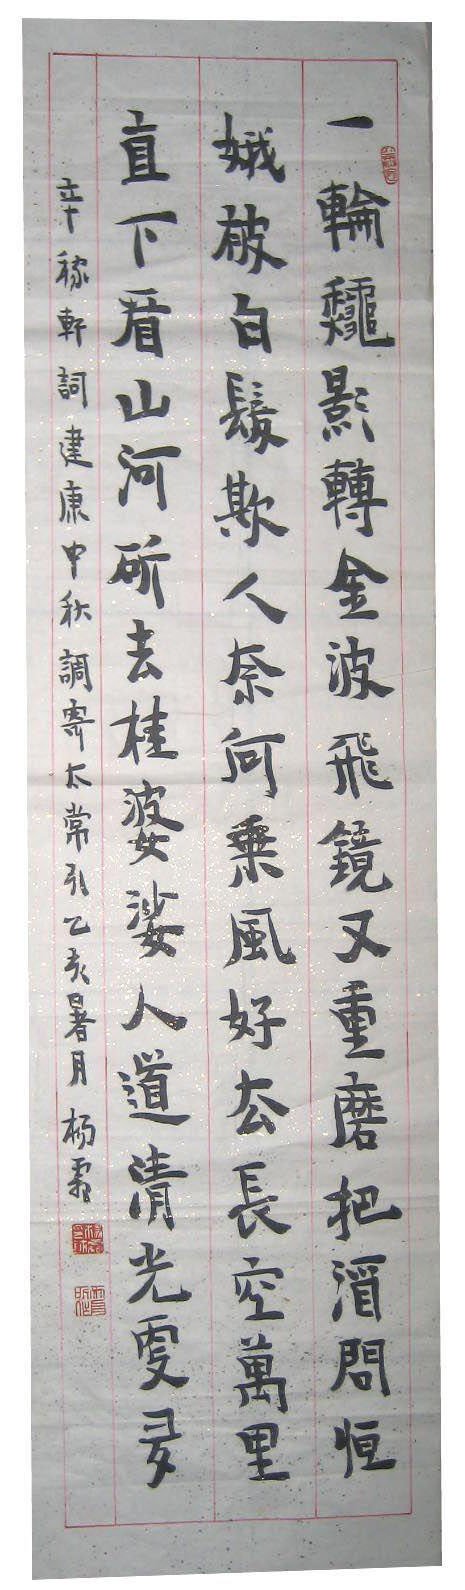 一輪龝影轉金波飛鏡又重磨把酒問恒
娥被白髮欺人奈何乗風好去長空萬里
直下看山河斫去桂婆娑人道清光更多
辛稼軒詞建康中秋調寄太常引乙亥暑月 杨